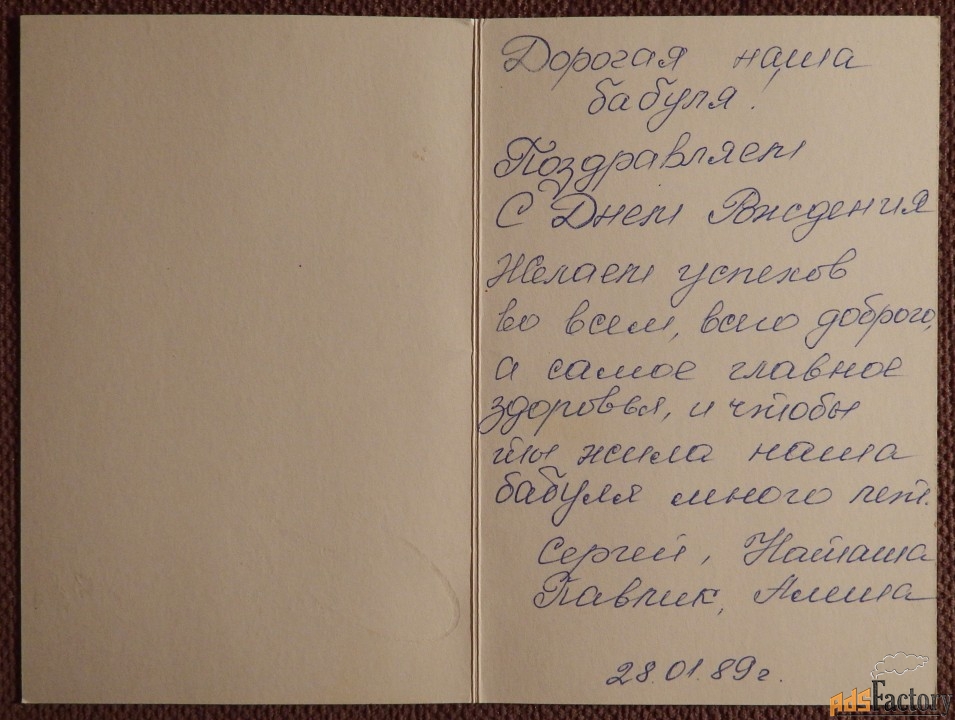 Дорогая наша
бабуля.
Поздравляем
С Днем Рождения
Желаем успехов
во всем, всего доброго,
а самое главное
здоровья, и чтобы
ты жила наша
бабуля много лет.
Сергей, Наташа
Павлик, Алёша
28.01.89г.
AdsFactory